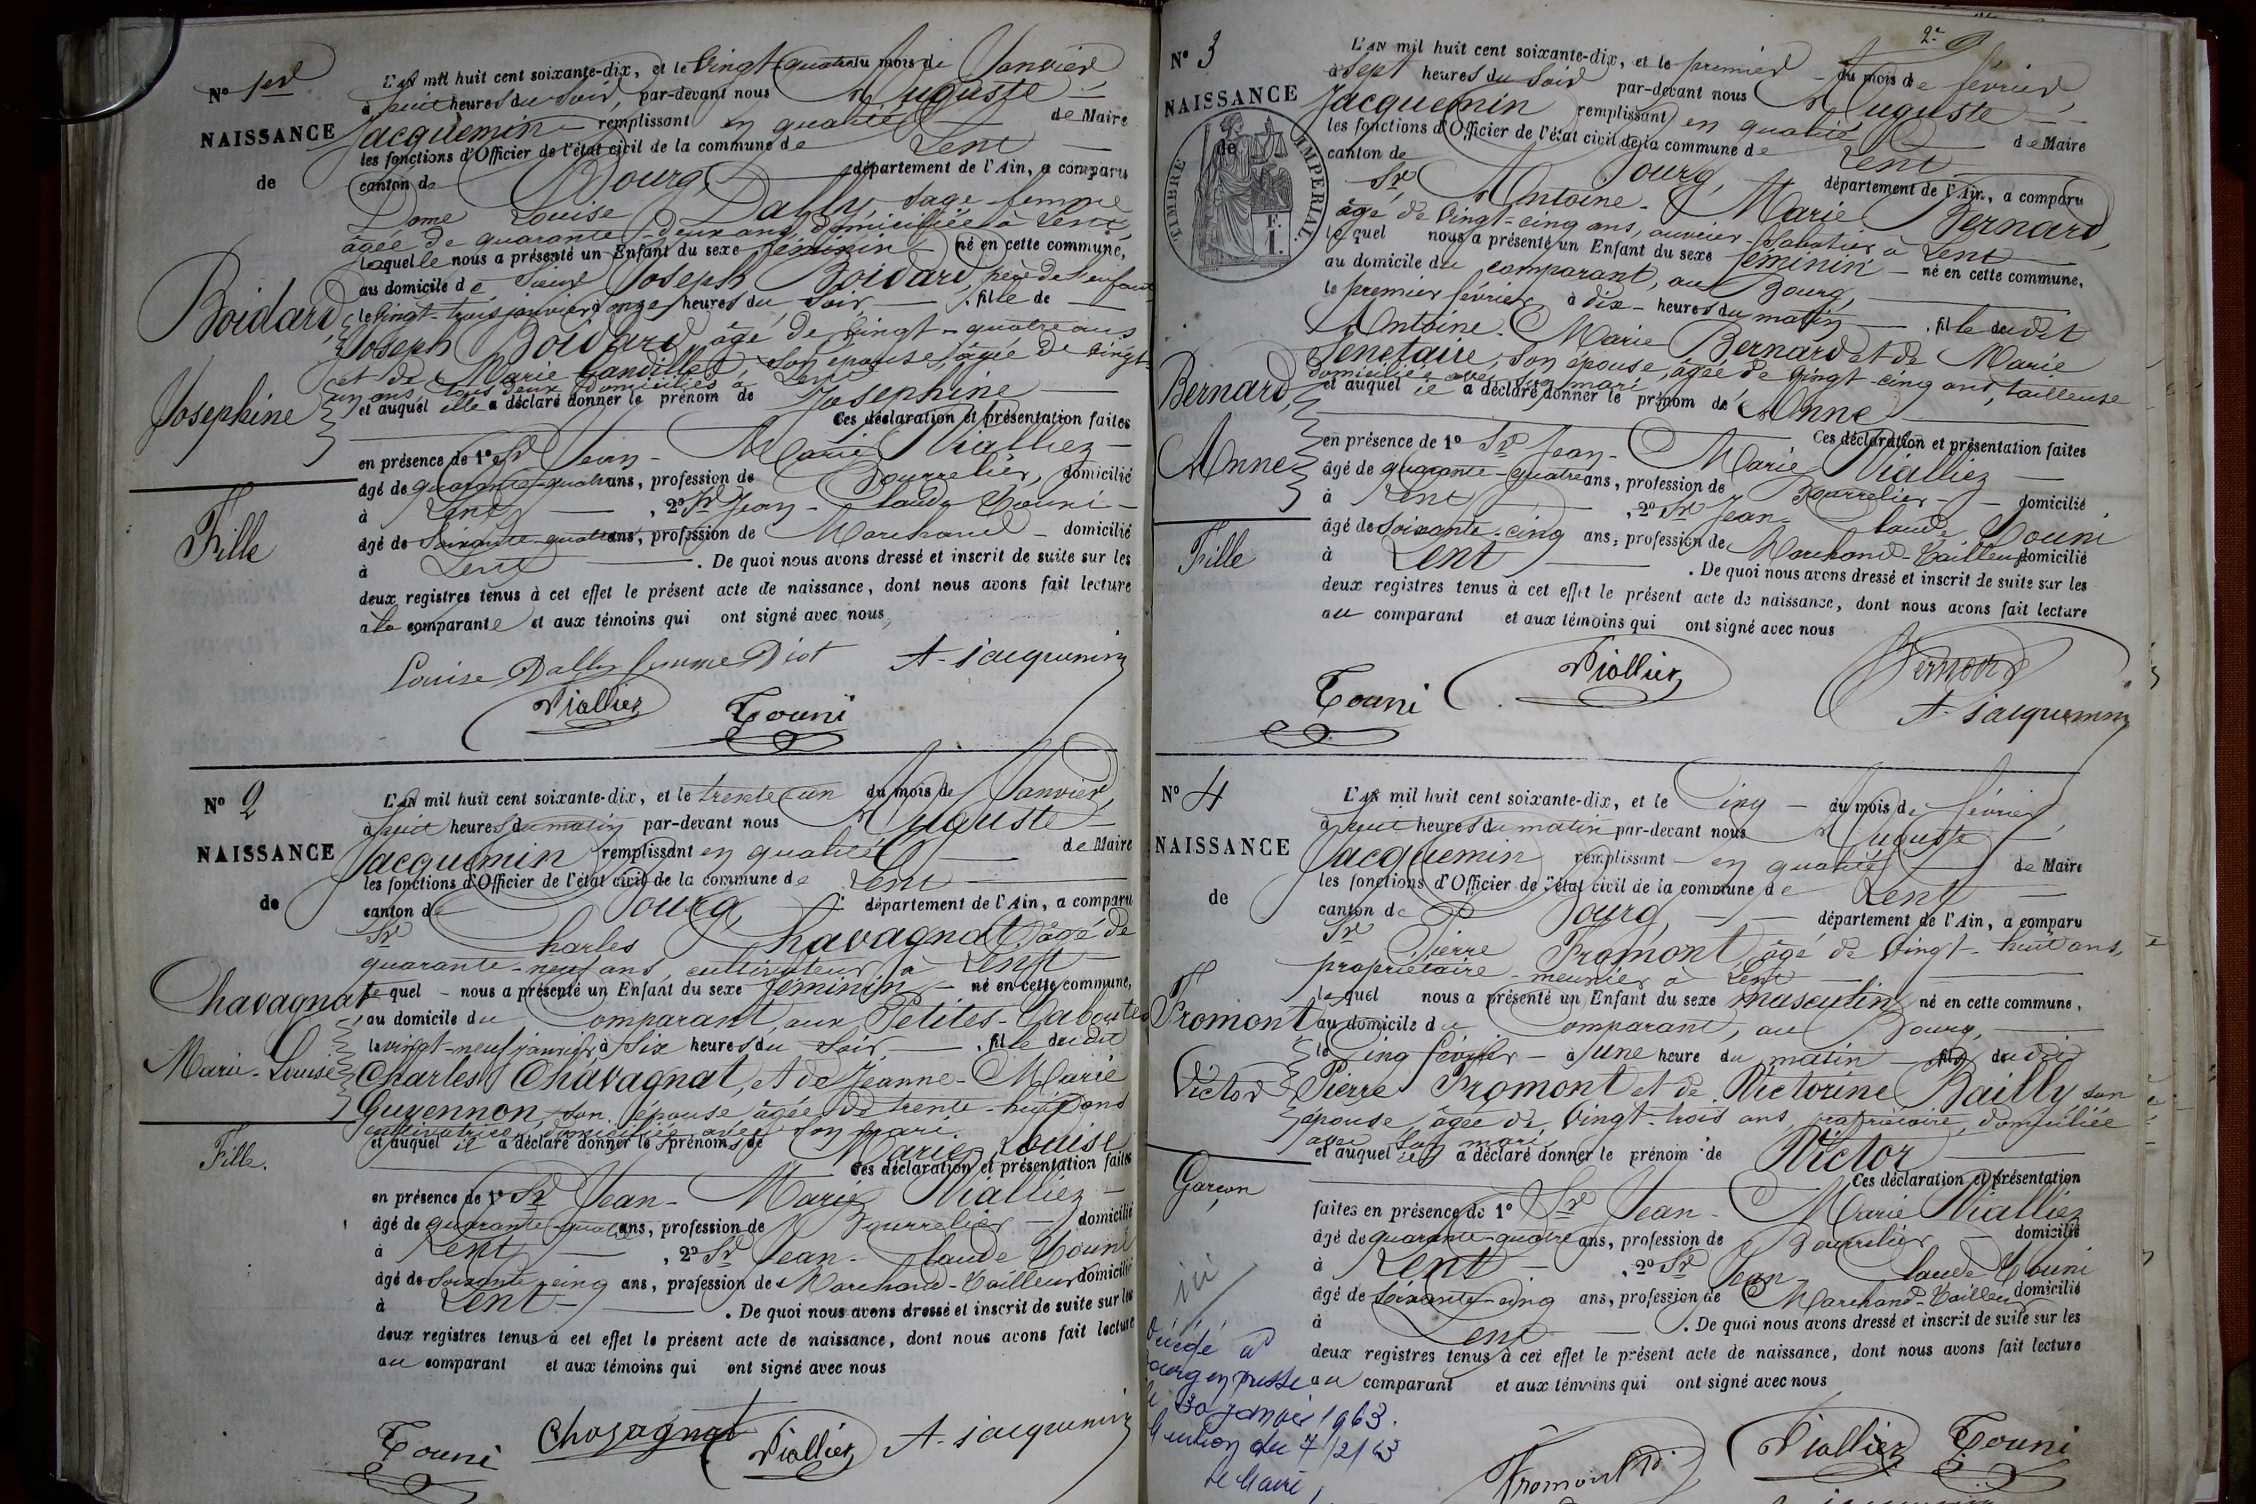 N° 1er
NAISSANCE
de
Boidard,
Josephine
Fille
L'AN mil huit cent soixante-dix, et le vingt-quatre du mois de Janvier
à huit heures du soir, par-devant nous Auguste
Jacquemin remplissant en qualité de Maire
les fonctions d'Officier de l'état civil de la commune de Lent
canton de Bourg, département de l'Ain, a comparu
Dame Louise Dally sage-femme
âgée de quarante-deux ans, domiciliée à Lent,
laquelle nous a présenté un Enfant du sexe féminin né en cette commune,
au domicile de Sieur Joseph Boidard, père de l'enfant
le vingt-trois janvier à onze heures du soir, fille de
Joseph Boidard, âgé de vingt-quatre ans
et de Marie son épouse, âgée de vingt-
un ans, tous deux domiciliés à Lent
et auquel elle a déclaré donner le prénom de Josephine
Ces déclaration et présentation faites
en présence de 1° Sr Jean-Marie Viallier
âgé de quarante-quatre ans, profession de Bourrelier, domicilié
à Lent, 2° Sr Jean-Claude Touni
âgé de soixante-quatre ans, profession de Marchand domicilié
à Lent. De quoi nous avons dressé et inscrit de suite sur les
deux registres tenus à cet effet le présent acte de naissance, dont nous avons fait lecture
à la comparante et aux témoins qui ont signé avec nous,
Louise Dally femme Diot A. Jacquemin
Viallier Touni
N° 2
NAISSANCE
de
Chavagnat,
Marie-Louise
Fille.
L'AN mil huit cent soixante-dix, et le trente-un du mois de Janvier,
à huit heures du matin par-devant nous Auguste
Jacquemin remplissant en qualité de Maire
les fonctions d'Officier de l'état civil de la commune de Lent
canton de Bourg, département de l'Ain, a comparu
Sr Charles Chavagnat, âgé de
quarante-neuf ans, cultivateur à Lent
lequel nous a présenté un Enfant du sexe féminin né en cette commune,
au domicile du Comparant, aux Petites-
le vingt-neuf janvier, à six heures du soir, fille dudit
Charles Chavagnat, et de Jeanne-Marie
Guyennon, son épouse âgée de trente-huit ans
cultivatrice, domiciliée avec son mari
et auquel il a déclaré donner les prénoms de Marie, Louise
Ces déclaration et présentation faites
en présence de 1° Sr Jean-Marie Viallier
âgé de quarante-quatre ans, profession de Bourrelier domicilié
à Lent, 2° Sr Jean-Claude Touni
âgé de soixante-cinq ans, profession de Marchand-Tailleur domicilié
à Lent. De quoi nous avons dressé et inscrit de suite sur les
deux registres tenus à cet effet le présent acte de naissance, dont nous avons fait lecture
au comparant et aux témoins qui ont signé avec nous
Touni Chavagnat Viallier A. Jacquemin
N° 3
NAISSANCE
de
TIMBRE IMPERIAL.
F.
1.
Bernard,
Anne
Fille
L'AN mil huit cent soixante-dix, et le premier du mois de février
à sept heures du soir par-devant nous Auguste
Jacquemin remplissant en qualité de Maire
les fonctions d'Officier de l'état civil de la commune de Lent
canton de Bourg, département de l'Ain, a comparu
Sr Antoine-Marie Bernard,
âgé de vingt-cinq ans, ouvrier-sabotier à Lent
lequel nous a présenté un Enfant du sexe féminin né en cette commune,
au domicile du comparant, au Bourg,
le premier février à dix heures du matin, fille dudit
Antoine-Marie Bernard et de Marie
Senetaire, son épouse, âgée de vingt-cinq ans, tailleuse
domiciliée avec son mari
et auquel il a déclaré donner le prénom de Anne
Ces déclaration et présentation faites
en présence de 1° Sr Jean-Marie Viallier
âgé de quarante-quatre ans, profession de Bourrelier domicilié
à Lent, 2° Sr Jean-Claude Touni
âgé de soixante-cinq ans, profession de Marchand-Tailleur domicilié
à Lent. De quoi nous avons dressé et inscrit de suite sur les
deux registres tenus à cet effet le présent acte de naissance, dont nous avons fait lecture
au comparant et aux témoins qui ont signé avec nous
Touni Viallier Bernard
A. Jacquemin
N° 4
NAISSANCE
de
Fromont
Victor
Garçon
L'AN mil huit cent soixante-dix, et le cinq du mois de février,
à huit heures du matin par-devant nous Auguste
Jacquemin remplissant en qualité de Maire
les fonctions d'Officier de l'état civil de la commune de Lent
canton de Bourg, département de l'Ain, a comparu
Sr Pierre Fromont, âgé de vingt-huit ans,
propriétaire-meunier à Lent
lequel nous a présenté un Enfant du sexe masculin né en cette commune,
au domicile du Comparant, au Bourg,
le cinq février à une heure du matin fils dudit
Pierre Fromont et de Victorine Bailly son
épouse, âgée de vingt-trois ans, propriétaire, domiciliée
avec son mari
et auquel il a déclaré donner le prénom de Victor
Ces déclaration et présentation
faites en présence de 1° Sr Jean-Marie Viallier
âgé de quarante-quatre ans, profession de Bourrelier domicilié
à Lent, 2° Sr Jean-Claude Touni
âgé de soixante-cinq ans, profession de Marchand-Tailleur domicilié
à Lent. De quoi nous avons dressé et inscrit de suite sur les
deux registres tenus à cet effet le présent acte de naissance, dont nous avons fait lecture
au comparant et aux témoins qui ont signé avec nous
Décédé à
Bourg en Bresse
le 30 janvier 1963.
Mention du 7/2/63
Le Maire,
Fromont Viallier Touni